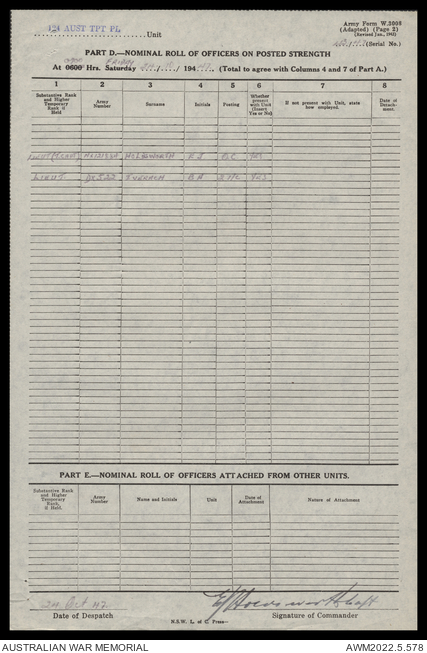 Army Form W.3008
(Adapted) (Page 2)
[Revised Jan., 1943]
124 AUST TPT PL Unit
(Serial No.)
PART D.—NOMINAL ROLL OF OFFICERS ON POSTED STRENGTH
At 0600 Hrs. Saturday FRIDAY 24/10/1947. (Total to agree with Columns 4 and 7 of Part A.)
1 2 3 4 5 6 7 8
Substantive Rank and Higher Temporary Rank if Held
Army Number
Surname
Initials
Posting
Whether present with Unit (Insert Yes or No)
If not present with Unit, state how employed.
Date of Detachment.
HOLDSWORTH E J O.C. YES
LIEUT. 2 I/C YES
PART E.—NOMINAL ROLL OF OFFICERS ATTACHED FROM OTHER UNITS.
Substantive Rank and Higher Temporary Rank, if Held.
Army Number
Name and Initials
Unit
Date of Attachment
Nature of Attachment
24 Oct 47.
EJ Holdsworth Capt
Date of Despatch
Signature of Commander
N.S.W. L. of C. Press—
AUSTRALIAN WAR MEMORIAL
AWM2022.5.578